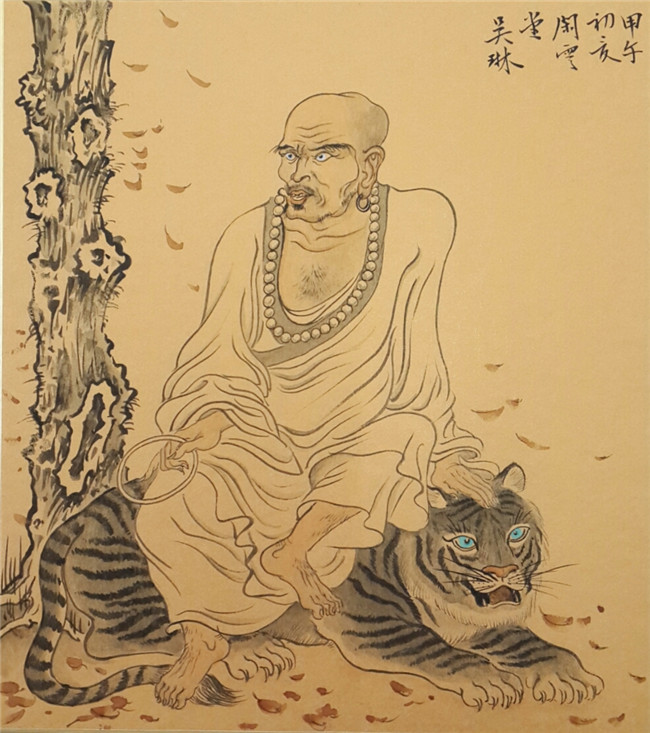 甲午
初夏
閑雲
堂
吴琳